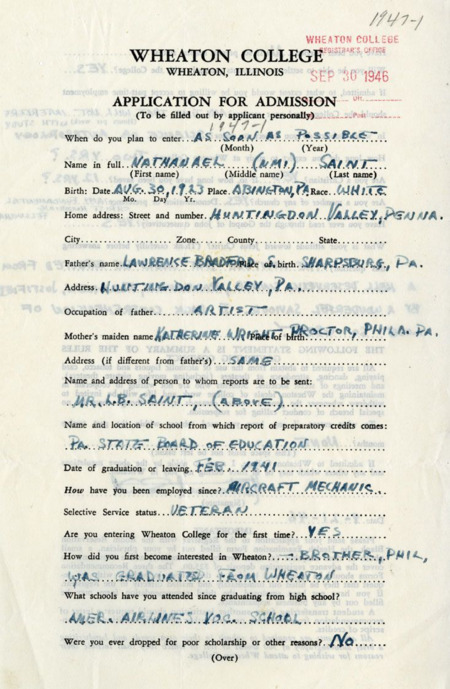 1947-1
WHEATON COLLEGE
REGISTRAR'S OFFICE
SEP 30 1946
WHEATON COLLEGE
WHEATON, ILLINOIS
APPLICATION FOR ADMISSION
(To be filled out by applicant personally)
1947-1
When do you plan to enter AS SOON AS POSSIBLE
(Month) (Year)
Name in full NATHANAEL (NMI) SAINT
(First name) (Middle name) (Last name)
Birth: Date AUG. 30, 1923 Place ABINGTON, PA Race WHITE
Mo. Day Yr.
Home address: Street and number. HUNTINGDON VALLEY, PENNA.
City Zone County State
Father's name LAWRENCE BRADFORD S. Place of birth SHARPSBURG, PA.
Address HUNTINGDON VALLEY, PA.
Occupation of father ARTIST
Mother's maiden name KATHERINE WRIGHT PROCTOR, Place of birth PHILA. PA.
Address (if different from father's) SAME
Name and address of person to whom reports are to be sent:
MR. L.B. SAINT, (ABOVE)
Name and location of school from which report of preparatory credits comes:
PA. STATE BOARD OF EDUCATION
Date of graduation or leaving FEB. 1941
How have you been employed since? AIRCRAFT MECHANIC
Selective Service status VETERAN
Are you entering Wheaton College for the first time? YES
How did you first become interested in Wheaton? - BROTHER, PHIL,
WAS GRADUATED FROM WHEATON
What schools have you attended since graduating from high school?
AMER. AIRLINES VOC. SCHOOL
Were you ever dropped for poor scholarship or other reasons? NO
(Over)